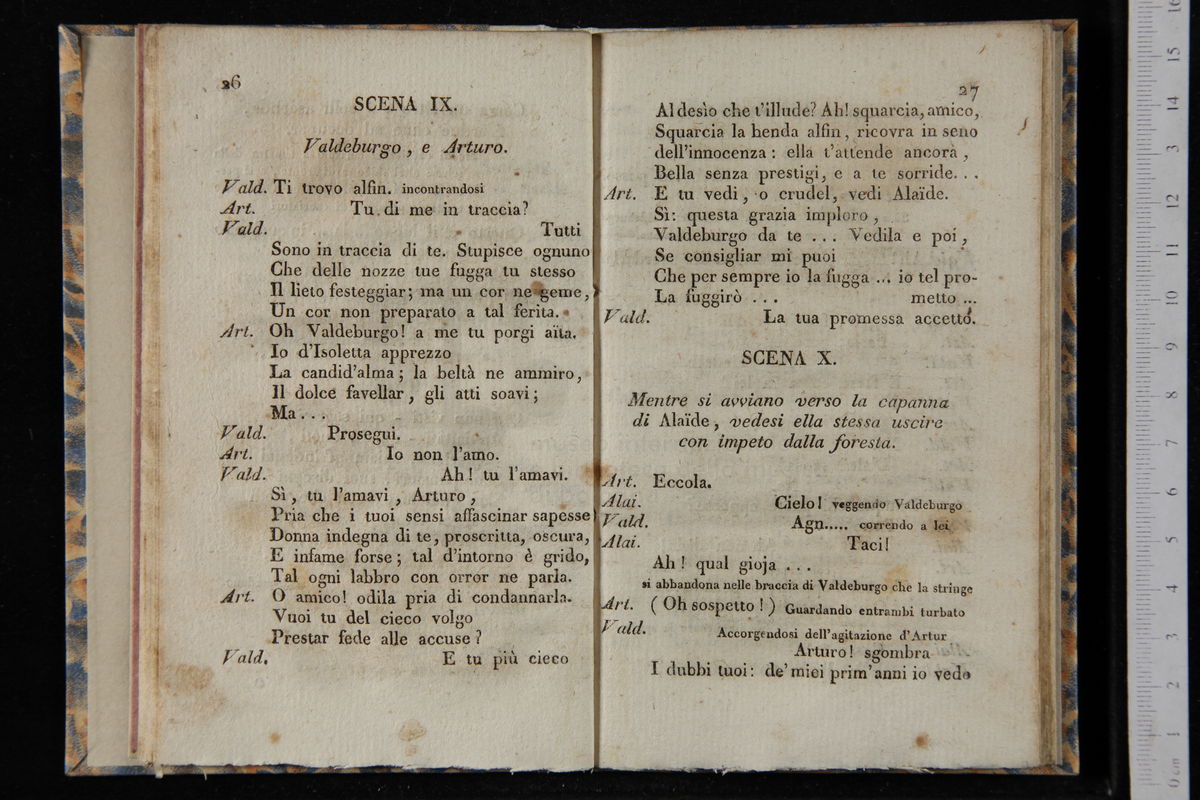 26
SCENA IX.
Valdeburgo, e Arturo.
Vald. Ti trovo alfin. incontrandosi
Art. Tu di me in traccia?
Vald. Tutti
Sono in traccia di te. Stupisce ognuno
Che delle nozze tue fugga tu stesso
Il lieto festeggiar; ma un cor ne geme,
Un cor non preparato a tal ferita.
Art. Oh Valdeburgo! a me tu porgi aïta.
Io d'Isoletta apprezzo
La candid'alma; la beltà ne ammiro,
Il dolce favellar, gli atti soavi;
Ma...
Vald. Prosegui.
Art. Io non l'amo.
Vald. Ah! tu l'amavi.
Sì, tu l'amavi, Arturo,
Pria che i tuoi sensi affascinar sapesse
Donna indegna di te, proscritta, oscura,
E infame forse; tal d'intorno è grido,
Tal ogni labbro con orror ne parla.
Art. O amico! odila pria di condannarla.
Vuoi tu del cieco volgo
Prestar fede alle accuse?
Vald. E tu più cieco
27
Al desìo che t'illude? Ah! squarcia, amico,
Squarcia la benda alfin, ricovra in seno
dell'innocenza: ella t'attende ancorà,
Bella senza prestigi, e a te sorride...
Art. E tu vedi, o crudel, vedi Alaïde.
Sì: questa grazia imploro,
Valdeburgo da te ... Vedila e poi,
Se consigliar mi puoi
Che per sempre io la fugga ... io tel pro-
La fuggirò ... metto ...
Vald. La tua promessa accetto.
SCENA X.
Mentre si avviano verso la capanna
di Alaïde, vedesi ella stessa uscire
con impeto dalla foresta.
Art. Eccola.
Alai. Cielo! veggendo Valdeburgo
Vald. Agn..... correndo a lei
Alai. Taci!
Ah! qual gioja ...
si abbandona nelle braccia di Valdeburgo che la stringe
Art. (Oh sospetto!) Guardando entrambi turbato
Vald. Accorgendosi dell'agitazione d'Artur
Arturo! sgombra
I dubbi tuoi: de' miei prim'anni io vedo
0 cm 1 2 3 4 5 6 7 8 9 10 11 12 13 14 15 16